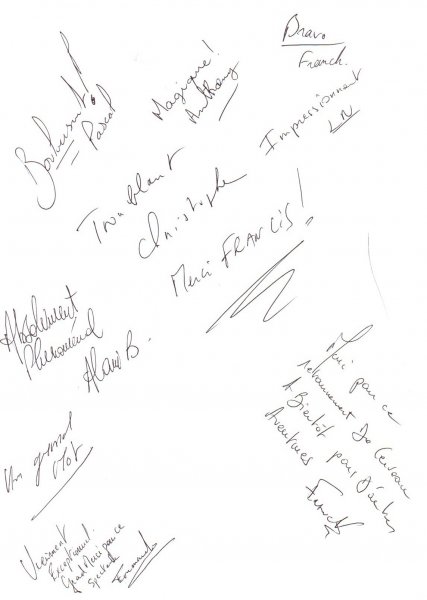 Bravo
Franck.
Magique!
Anthony
Bouleversant!
Pascal
Impressionnent
Troublant
Christophe
Merci FRANCIS!
Absolument
Phénoménal
Alain B.
Merci pour ce
retournement De Cerveau
A Bientôt pour D'autres
Aventures
Un grand
Vraiment
Exceptionnel.
Grand Merci pour ce
spectacle